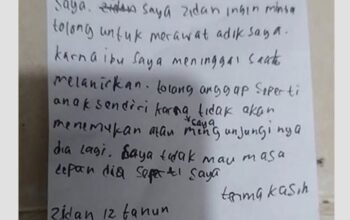 saya. Saya zidan ingin minta
tolong untuk merawat adik saya.
karna ibu saya meninggal saat
melahirkan. tolong anggap seperti
anak sendiri karna tidak akan
saya
menemukan atau mengunjungi nya
dia lagi. Saya tidak mau masa
depan dia seperti saya
terma kasih
zidan 12 tahun